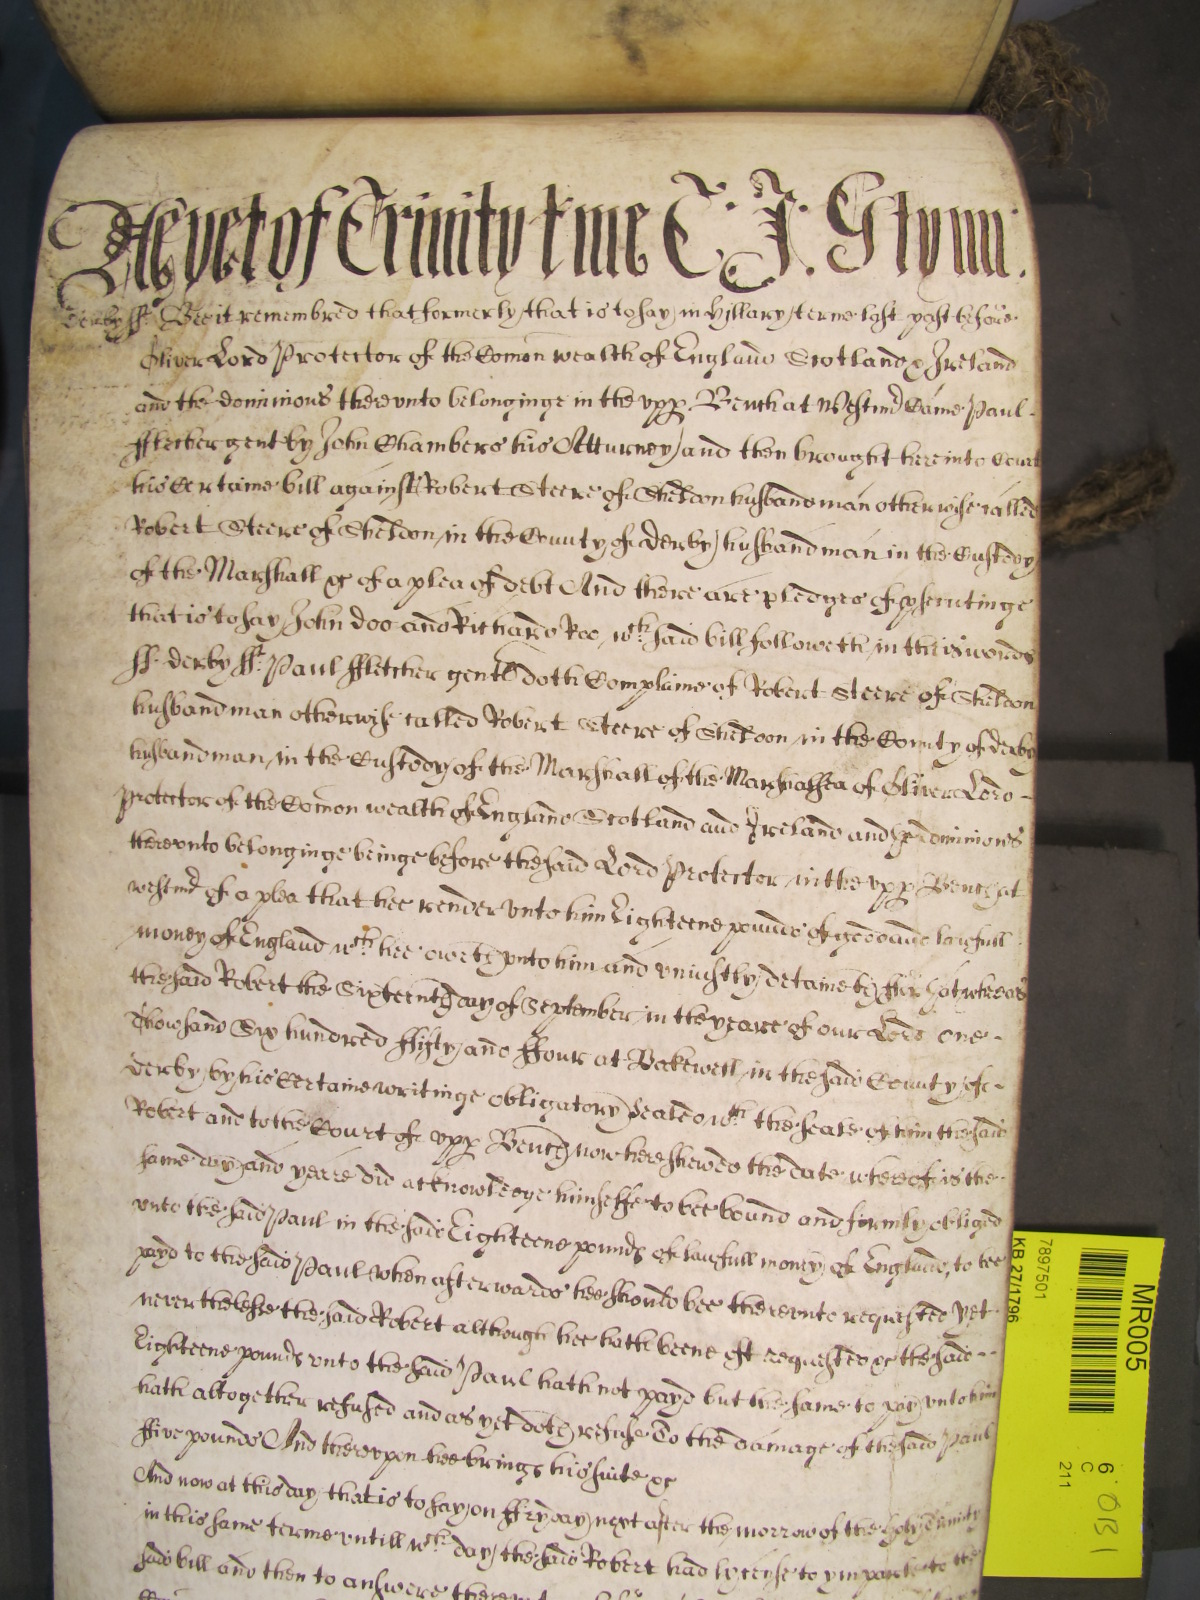 As yet of Trinity terme C: J: Glynn:
Derby ss Bee it remembred that formerly that is to say in Hillary terme last past before
Oliver Lord Protector of the Comon wealth of England Scotland & Ireland
and the dominions thereunto belonginge in the upp Bench at Westm̃ Came Paul
ffletcher gent by John Chambers his Atturney and then brought here into Court
his Certaine bill against Robert Steere of Sheldon husbandman otherwise called
Robert Steere of Sheldon in the County of derby husbandman in the Custody
of the Marshall &c of a plea of debt And there are pledges of psecutinge
that is to say John doo and Richard Roo, wch said bill followeth in theis words
ss derby ss Paul ffletcher gent doth Complaine of Robert Steere of Sheldon
husbandman otherwise called Robert Steere of Sheldon in the County of derby
husbandman, in the Custody of the Marshall of the Marshalsea of Oliver Lord
Protector of the Comon wealth of England Scotland and Ireland and the dominions
thereunto belonginge beinge before the said Lord Protector in the upp Bench at
westm̃ of a plea that hee render unto him Eighteene pounds of good and lawfull
money of England wch hee oweth unto him and uniustly detaineth ffor that whereas
the said Robert the Sixteenth day of September in the yeare of our Lord one
Thowsand Six hundred ffifty and ffour at Bakewell in the said County of
derby by his Certaine writinge obligatory Sealed wth the seale of him the said
Robert and to the Court of upp Bench now here shewed the date whereof is the
same day and yeare did acknowledge himselfe to bee bound and firmly obliged
unto the said Paul in the said Eighteene pounds of lawfull money of England, to bee
payd to the said Paul when afterwards hee should bee thereunto requested Yet
neverthelesse the said Robert although hee hath beene oft requested &c the said
Eighteene pounds unto the said Paul hath not payd but the same to pay unto him
hath altogether refused and as yet doth refuse To the damage of the said Paul
ffive pounds And thereupon hee brings his suite &c
And now at this day that is to say on ffryday next after the morrow of the holy Trinity
in this same terme untill wch day the said Robert had lycense to imparle to the
said bill and then to answere
MR005
7897501
KB 27/1796
6
C
211